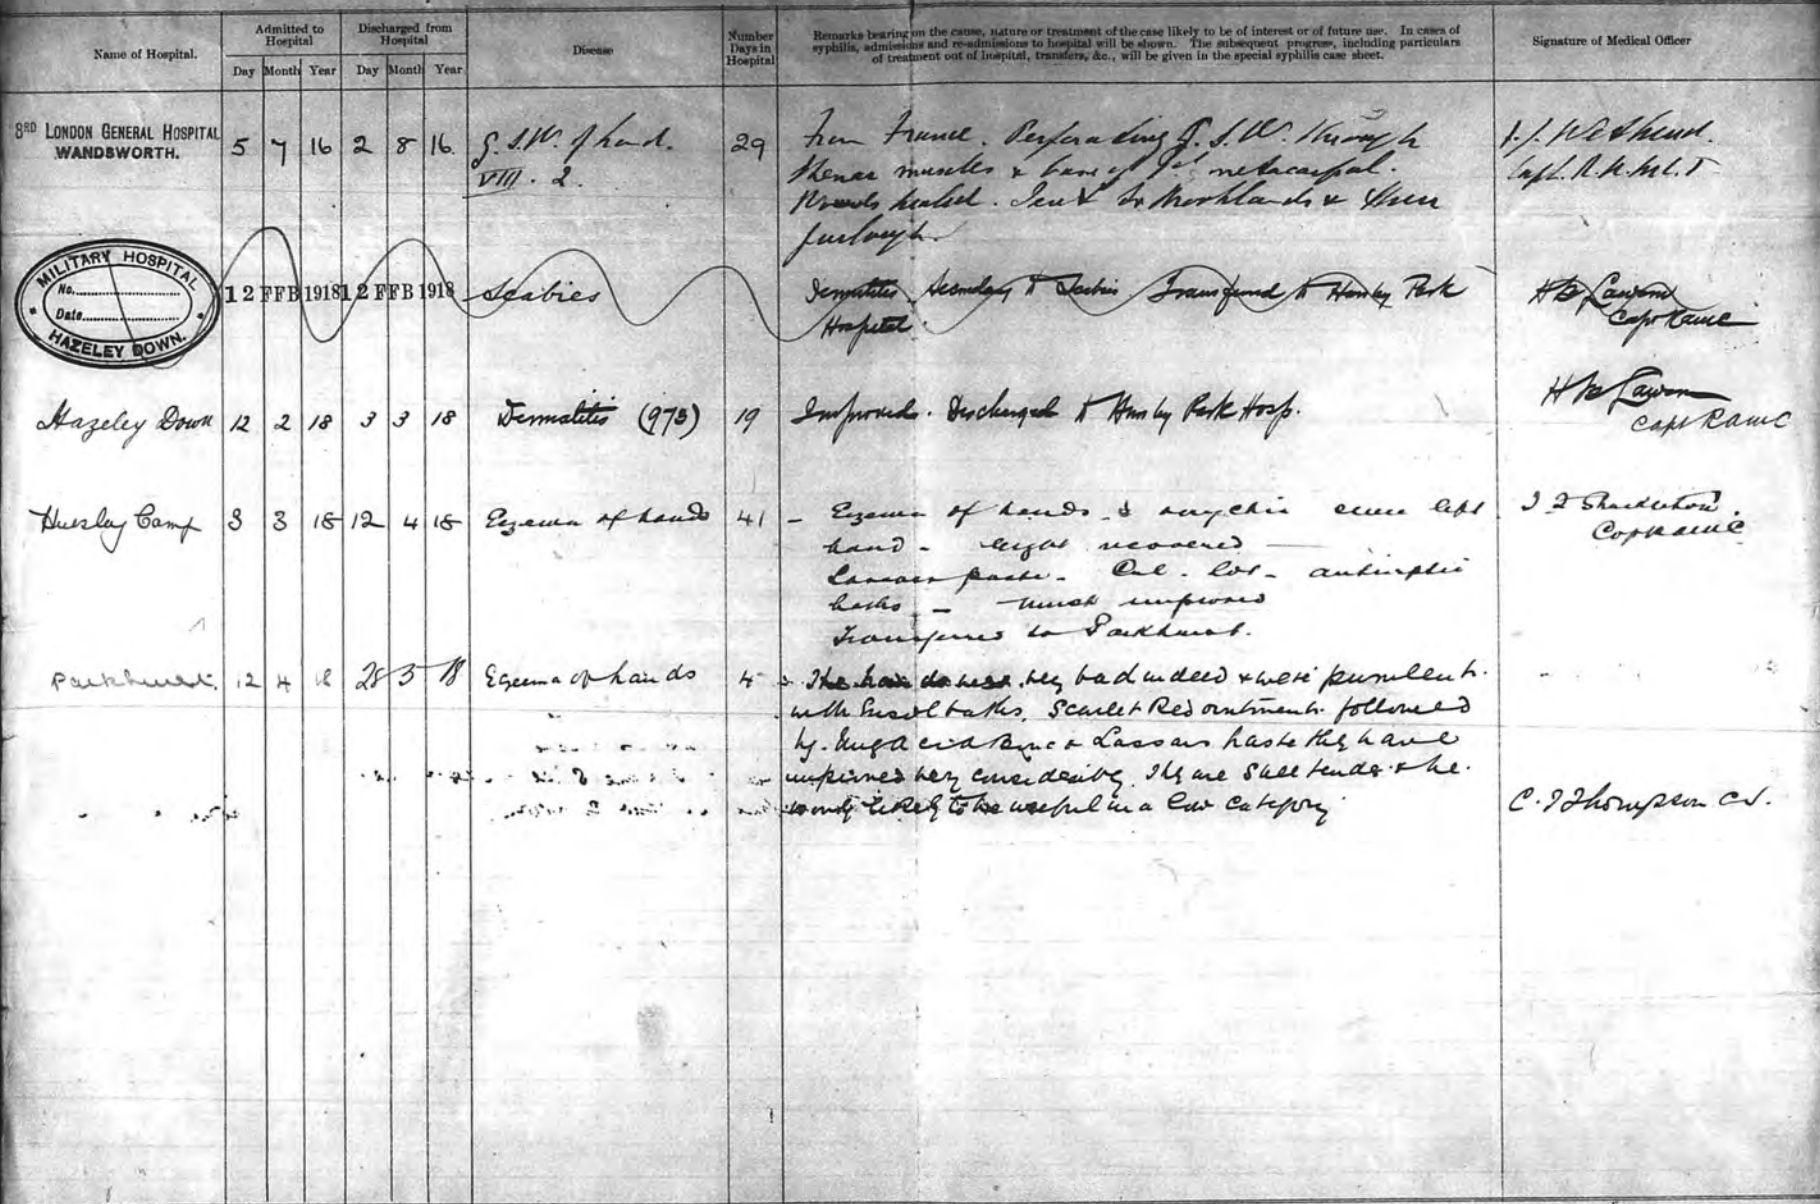 Name of Hospital.
Admitted to Hospital
Discharged from Hospital
Disease
Number Days in Hospital
Remarks bearing on the cause, nature or treatment of the case likely to be of interest or of future use. In cases of
syphilis, admissions and re-admissions to hospital will be shown. The subsequent progress, including particulars
of treatment out of hospital, transfers, &c., will be given in the special syphilis case sheet.
Signature of Medical Officer
Day Month Year Day Month Year
3RD LONDON GENERAL HOSPITAL
WANDSWORTH.
5 7 16 2 8 16
G.S.W. of hand.
VIII. 2.
29
From France. Perforating G.S.W. through
thenar muscles & base of 1st metacarpal.
Wounds healed. Sent to & then
furlough.
Capt. R.A.M.C.T
MILITARY HOSPITAL
No.
Date
HAZELEY DOWN.
12 FEB 1918 12 FEB 1918
Scabies
Dermatitis Secondary to Scabies Transferred to Hursley Park
Hospital.
H B Lawson
Capt RAMC
Hazeley Down 12 2 18 3 3 18 Dermatitis (973) 19 Improved. Discharged to Hursley Park Hosp.
H B Lawson
Capt RAMC
Hursley Camp 3 3 18 12 4 18 Eczema of hands 41 - Eczema of hands & onychia left
hand - right recovered -
Lassar paste - Cal. lot - antiseptic
baths - much improved
Transferred to Parkhurst.
Shackleton
Capt RAMC
Parkhurst. 12 4 18 28 5 18 Eczema of hands
The hands were very bad indeed & were purulent.
with Eusol baths, Scarlet Red ointment followed
by Ung Acid & Lassars paste they have
improved very considerably. They are still tender & he
is only likely to be useful in a low category
C. J Thompson